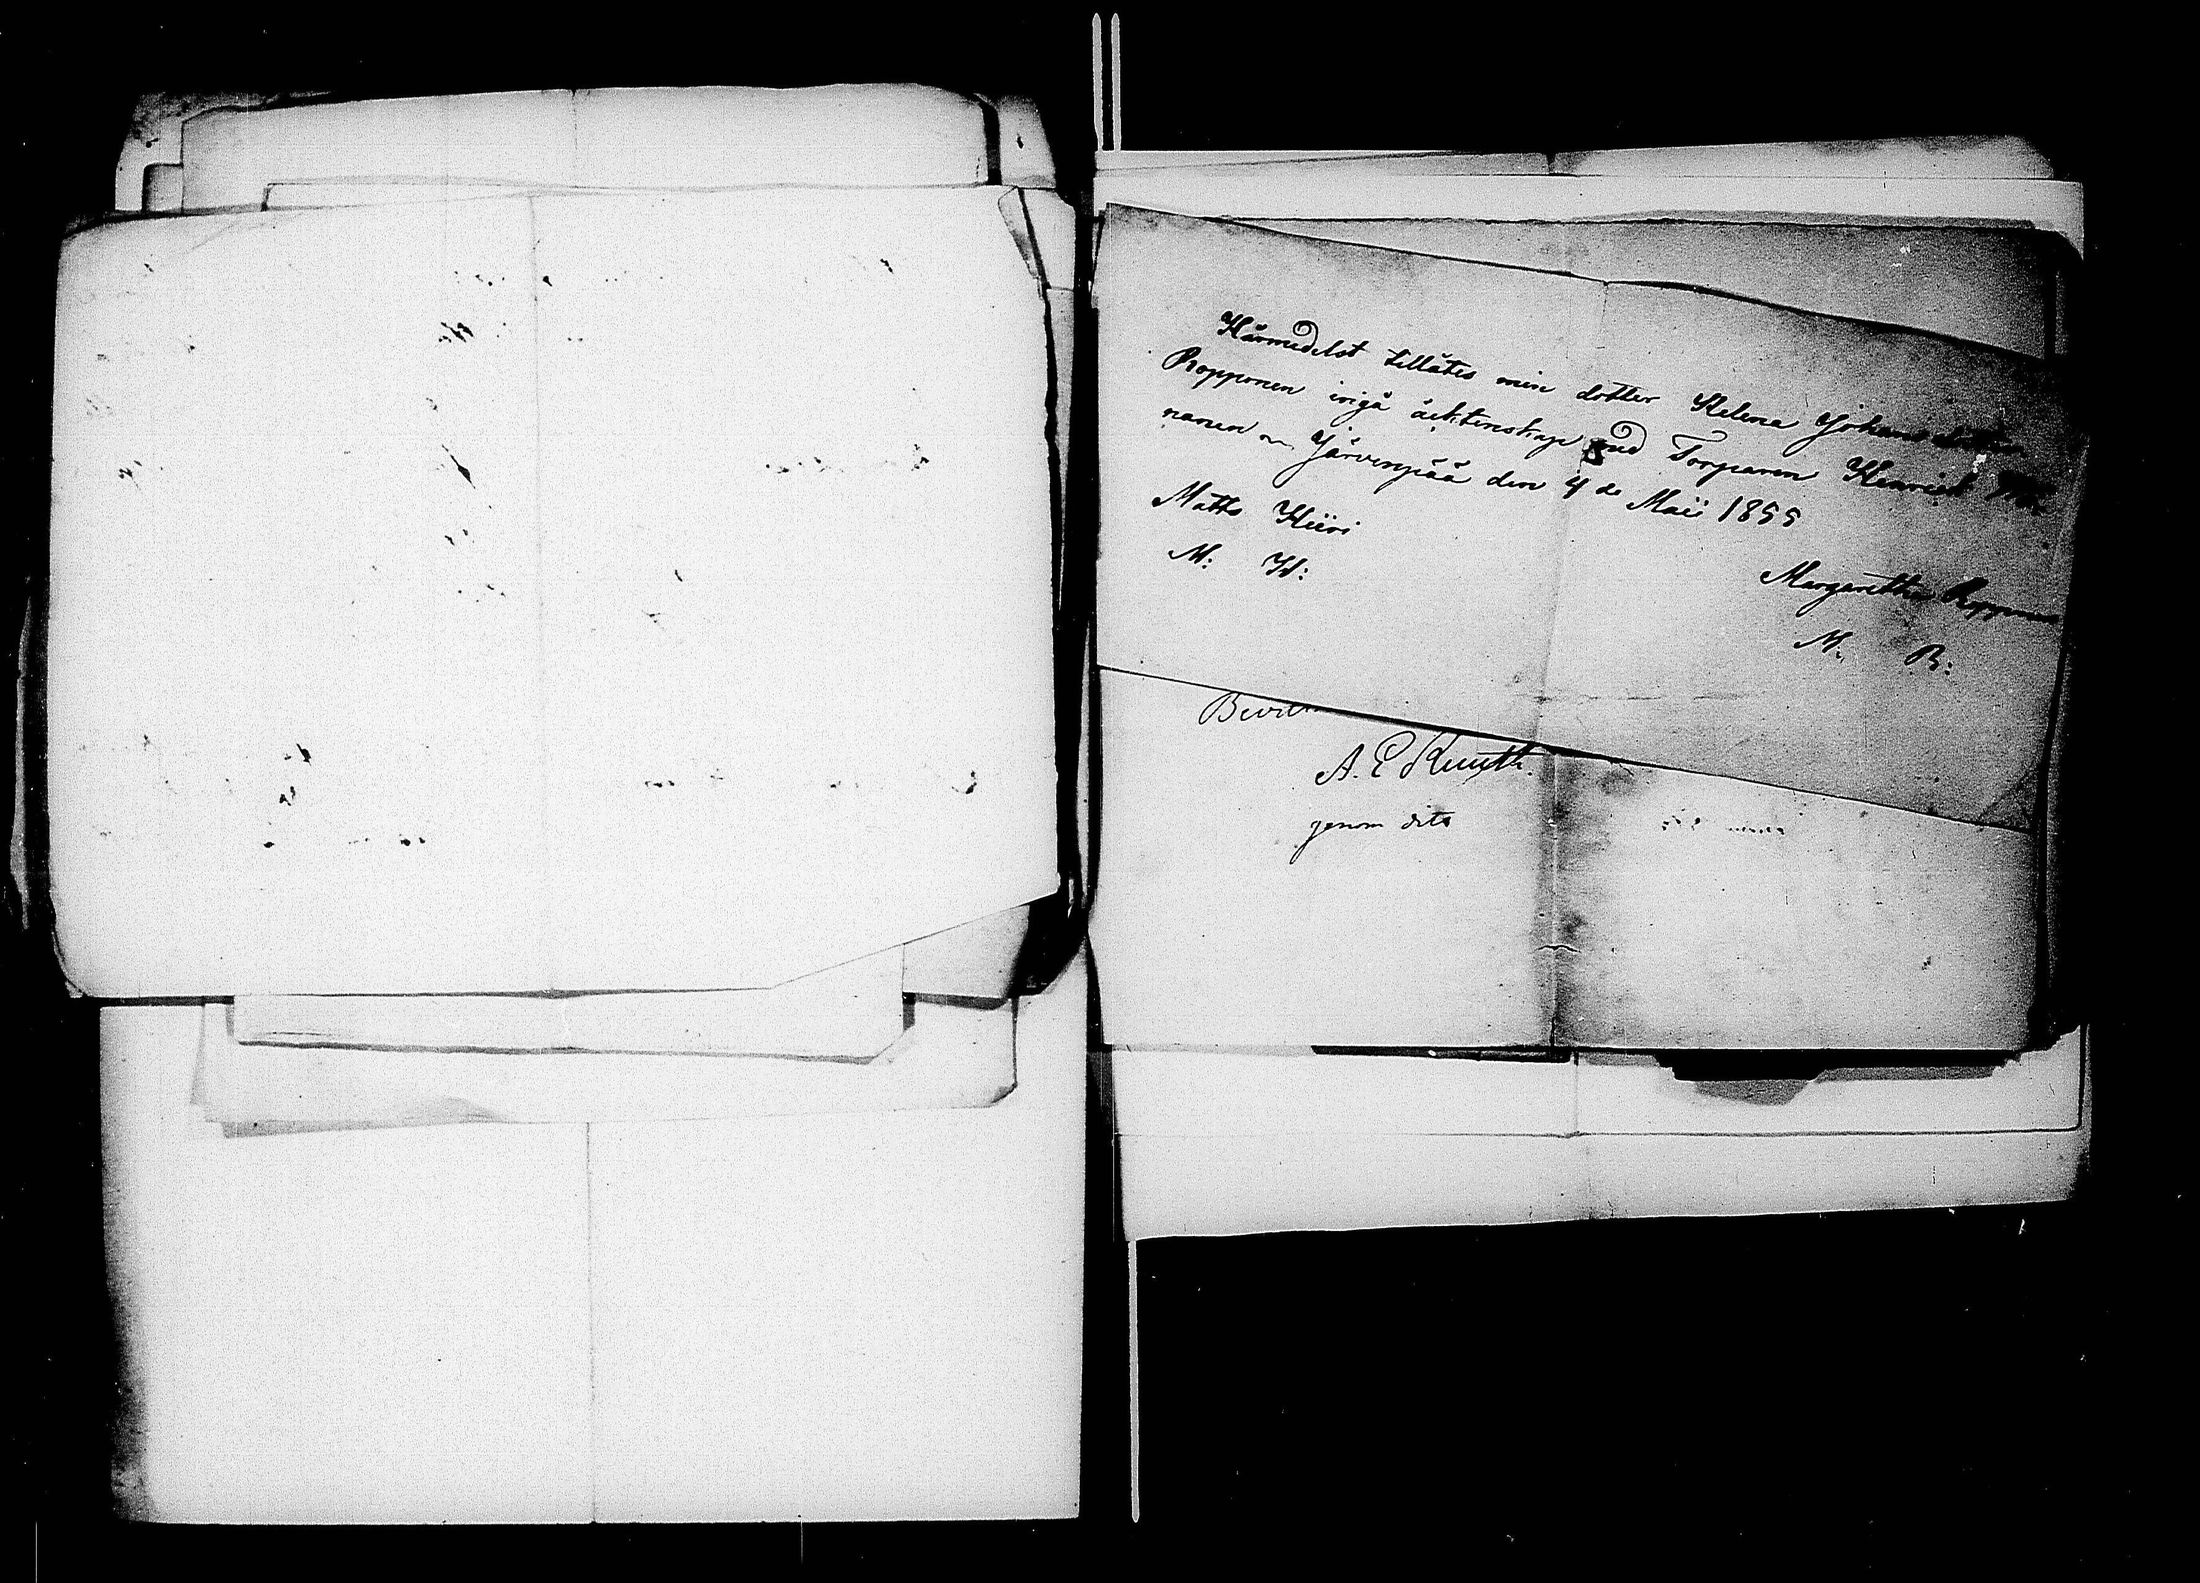 Härmedelst tillåtes min dotter Helena Johansdotter
Ropponen ingå äcktenskap med Torparen Henrich
nanen Järvenpää den 4 de Maii 1855
Matts Hiiri
M: H:
Margaretha Ropponen
M. R:
A. E Knuth.
genom dito